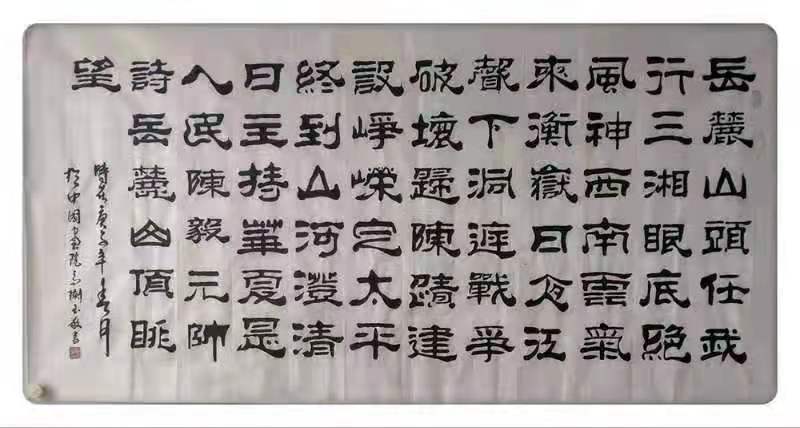 岳麓山頭任我
行三湘眼底絕
風神西南雲氣
來衡嶽日夜江
聲下洞庭戰爭
破壞歸陳蹟建
設崢嶸定太平
終到山河澄清
日主持華夏是
人民陳毅元帥
詩岳麓山頂眺
望
時在庚子年春月
於中國書畫院